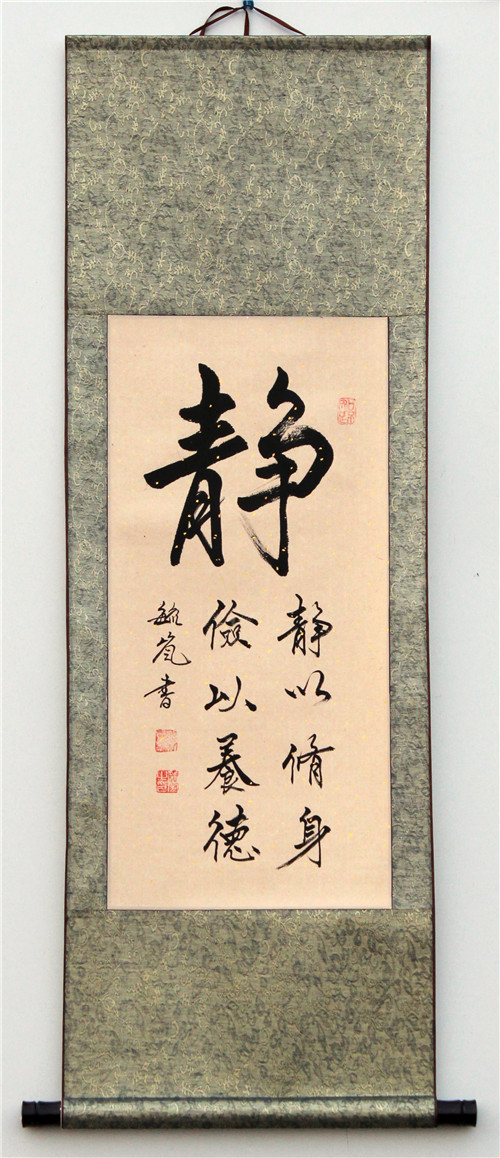 静
静以脩身
儉以養德
嵐書